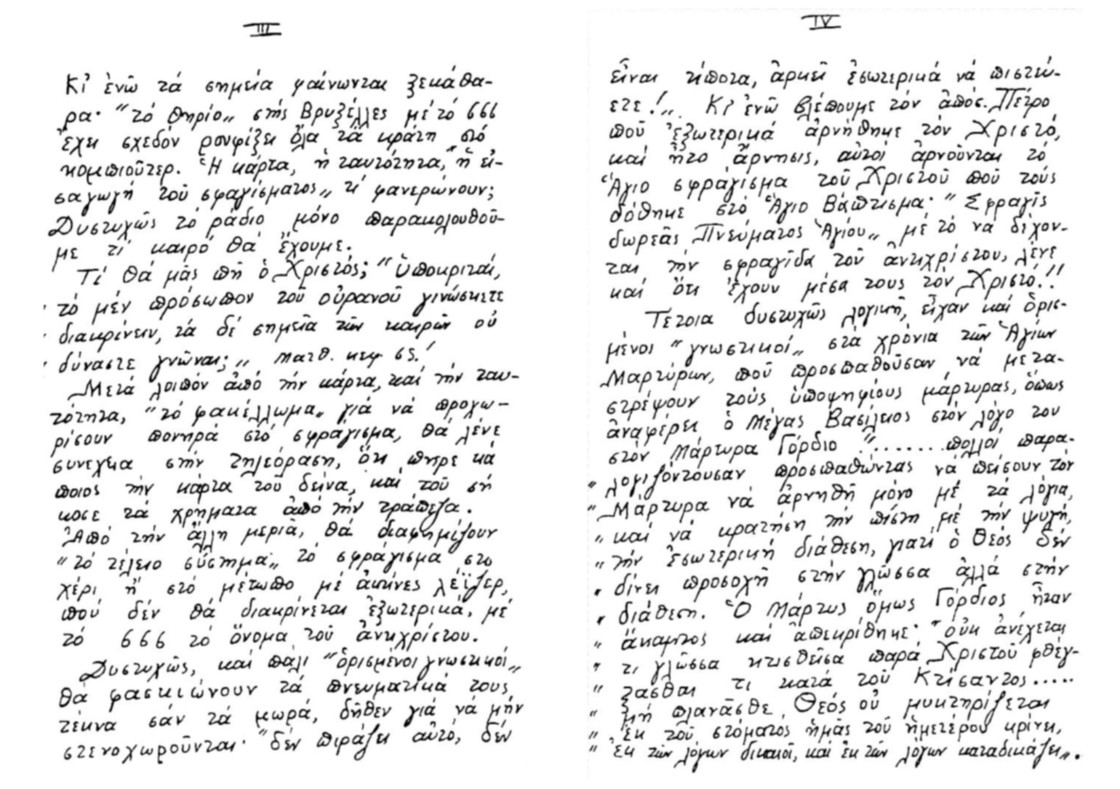 III
Κι ἐνῶ τά σημεία φαίνωνται ξεκάθα-
ρα· "τό θηρίο„ στίς Βρυξέλλες μέ τό 666
ἔχει σχεδόν ρουφίξει ὅλα τά κράτη στό
κομπιοῦτερ. Ἡ κάρτα, ἡ ταυτότητα, "ἡ εἰ-
σαγωγή τοῦ σφαγίσματος„ τί φανερώνουν;
Δυστυχῶς τό ράδιο μόνο παρακολουθοῦ-
με τί καιρό θά ἔχουμε.
Τί θά μᾶς πῆ ὁ Χριστός; "ὑποκριταί,
τό μέν πρόσωπον τοῦ οὐρανοῦ γινώσκετε
διακρίνειν, τά δέ σημεῖα τῶν καιρῶν οὐ
δύναστε γνῶναι; „ Ματθ. κεφ 65.!
Μετά λοιπόν ἀπό τήν κάρτα, καί τήν ταυ-
τότητα, "τό φακέλλωμα„ γιά νά προχω-
ρίσουν πονηρά στό σφράγισμα, θά λένε
συνεχεια στήν τηλεόραση, ὅτι πηρε κά
ποιος τήν κάρτα τοῦ δείνα, καί τοῦ σή
κοσε τά χρηματα ἀπό τήν τράπεζα.
Ἀπό τήν ἄλλη μεριᾶ, θά διαφημίζουν
"τό τέλειο σύστημα„ τό σφράγισμα στο
χέρι ἤ στό μέτωπο μέ ἀκτίνες λέϊζερ,
πού δέν θά διακρίνεται ἐξωτερικά, μέ
τό 666 τό ὄνομα τοῦ ἀντιχρίστου.
Δυστυχῶς, καί πάλι "ὁρισμένοι γνωστικοί„
θά φασκιώνουν τά πνευματικά τους
τέκνα σάν τά μωρά, δῆθεν γιά νά μήν
στενοχωροῦνται· "δέν πιράζει αὐτό, δέν
IV
εἶναι τίποτα, ἀρκεῖ ἐσωτερικά νά πιστεύ-
ετε!„. Κι ἐνῶ βλέπουμε τόν ἀπόσ. Πέτρο
πού ἐξωτερικά ἀρνήθηκε τόν Χριστό,
καί ἦτο ἄρνησις, αὐτοί ἀρνοῦνται τό
Ἅγιο σφράγισμα τοῦ Χριστοῦ πού τούς
δόθηκε στό Ἅγιο Βάπτισμα· "Σφραγίς
δωρεᾶς Πνεύματος Ἁγίου„ μέ τό νά δέχον-
ται τήν σφραγίδα τοῦ ἀντιχρίστου, λένε
καί ὅτι ἔχουν μέσα τους τόν Χριστό!!
Τέτοια δυστυχῶς λογική, εἶχαν καί ὁρισ-
μένοι "γνωστικοί„ στα χρόνια τῶν Ἁγίων
Μαρτύρων, πού προσπαθοῦσαν νά μετα-
στρέψουν τούς ὑποψηφίους μάρτυρας, ὅπως
ἀναφέρει ὁ Μέγας Βασίλειος στόν λόγο του
στόν Μάρτυρα Γόρδιο "........πολλοί παρα-
" λογιζόντουσαν προσπαθώντας νά πείσουν τόν
" Μάρτυρα νά ἀρνηθῆ μόνο μέ τά λόγια,
" καί νά κρατήση τήν πίστη μέ τήν ψυχή,
" τήν ἐσωτερική διάθεση, γιατί ὁ Θεός δέν
" δίνει προσοχή στήν γλῶσσα ἀλλά στήν
" διάθεση. Ὁ Μάρτυς ὅμως Γόρδιος ἦταν
" ἄκαμπτος καί ἀπεκρίθηκε· "οὐκ ἀνέχεται
" τι γλῶσσα κτισθεῖσα παρά Χριστοῦ φθέγ-
" ξασθαι τι κατά τοῦ Κτίσαντος.....
" μή πλανᾶσθε Θεός οὐ μυκτηρίζεται
" ἐκ τοῦ στόματος ἡμᾶς τοῦ ἡμετέρου κρίνει,
" ἐκ τῶν λόγων δικαιοῖ, καί ἐκ τῶν λόγων καταδικάζει„.